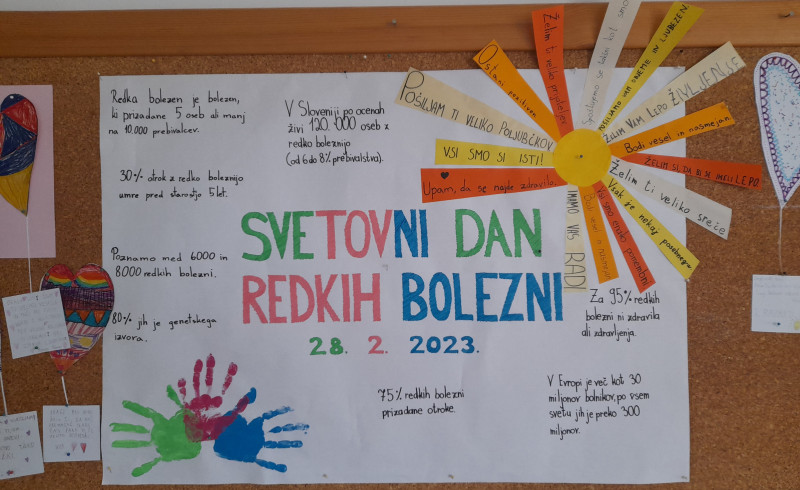 Redka bolezen je bolezen,
ki prizadane 5 oseb ali manj
na 10.000 prebivalcev.
30% otrok z redko boleznijo
umre pred starostjo 5 let.
Poznamo med 6000 in
8000 redkih bolezni.
80% jih je genetskega
izvora.
V Sloveniji po ocenah
živi 120.000 oseb z
redko boleznijo
(od 6 do 8% prebivalstva).
SVETOVNI DAN
REDKIH BOLEZNI
28. 2. 2023.
75% redkih bolezni
prizadane otroke.
Za 95% redkih
bolezni ni zdravila
ali zdravljenja.
V Evropi je več kot 30
miljonov bolnikov, po vsem
svetu jih je preko 300
miljonov.
Upam, da se najde zdravilo.
VSI SMO SI ISTI!
POŠILJAM TI VELIKO POLJUBČKOV
Ostani pozitiven
Želim ti veliko prijateljev
POŠILJAMO VAM OBJEME IN LJUBEZEN
ŽELIM VAM LEPO ŽIVLJENJE
Bodi vesel in nasmejan
ŽELIM SI DA BI SE IMELI LEPO
Želim ti veliko sreče
Vsak je nekaj posebnega
Vsi smo enako pomembni
IMAMO VAS RADI